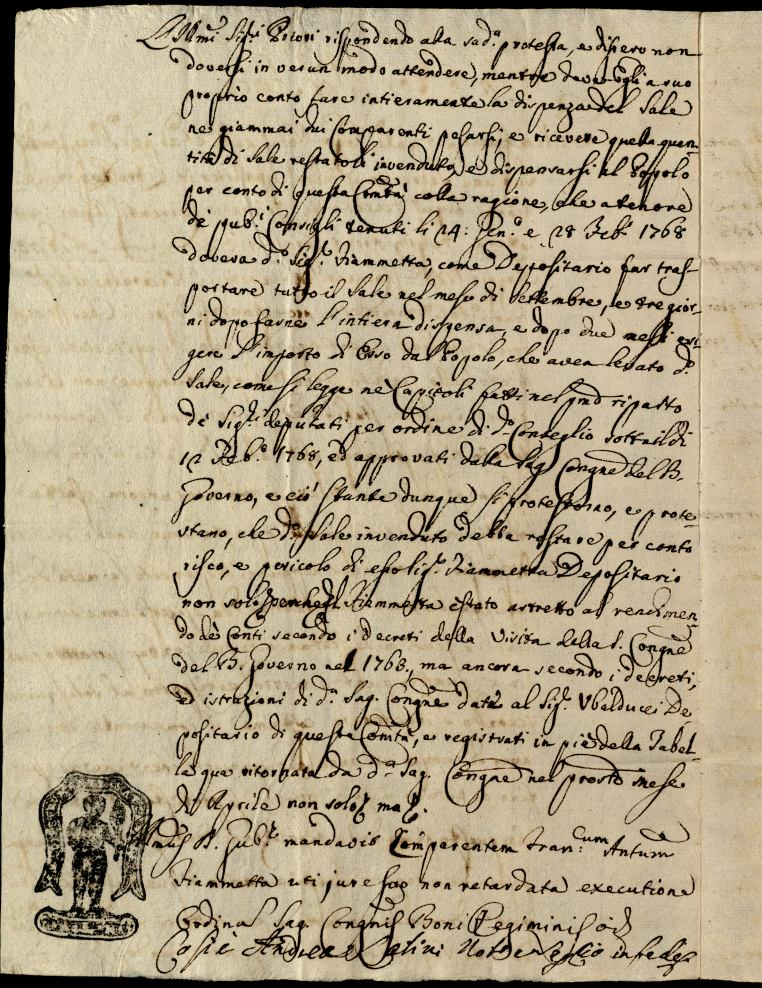 Ill.mi Sig.ri Priori rispondendo alla sud.a protesta, e dissero non
doversi in verun modo attendere, mentre dovea egli a suo
proprio conto fare intieramente la dispenza del Sale
ne giammai dui Comparenti pesarsi, e ricevere quella quan-
tità di Sale restatoli invenduto, e dispensarsi al Popolo
per conto di questa Com̃tà colla ragione, che a tenore
de pub.i Consigli tenuti li 24: Gen.o e 28 Feb.o 1768
doveva d.o Sig.r Fiammetta, come Depositario far tras-
portare tutto il Sale nel mese di Settembre, e tre gior-
ni dopo farne l'intiera dispensa, e dopo due mesi esi-
gere l'importo di Esso dal Popolo, che avea levato d.o
Sale, come si legge ne Capitoli fatti nel riparto
de Sig.ri deputati per ordine di d.o Conseglio sotto il dì
12 Feb.o 1768, ed approvati dalla Sag. Congñe del B.
Governo, e ciò stante dunque si protestorno, e prote-
stano, che d.o Sale invenduto debba restare per conto
risco, e pericolo di esso Sig.r Fiammetta Depositario
non solo perche il Fiammetta è stato astretto al rendimen-
to de Conti secondo i decreti della Visita della S. Congñe
del B. Governo nel 1768., ma ancora secondo i decreti,
ed istruzioni di d.a Sag. Congñe date al Sig.r Ubalducci De-
positario di questa Com̃tà, e registrati in piè della Tabel-
la qua ritornata da d.a Sag. Congñe nel mese
di Aprile non solo ma
D. Gub.r mandavit Comparentem Antum
Fiammetta uti jure suo non retardata executione
Ordinũ Sag. Congñis Boni Regiminis
Così è Andrea Salini Not.o e in fede